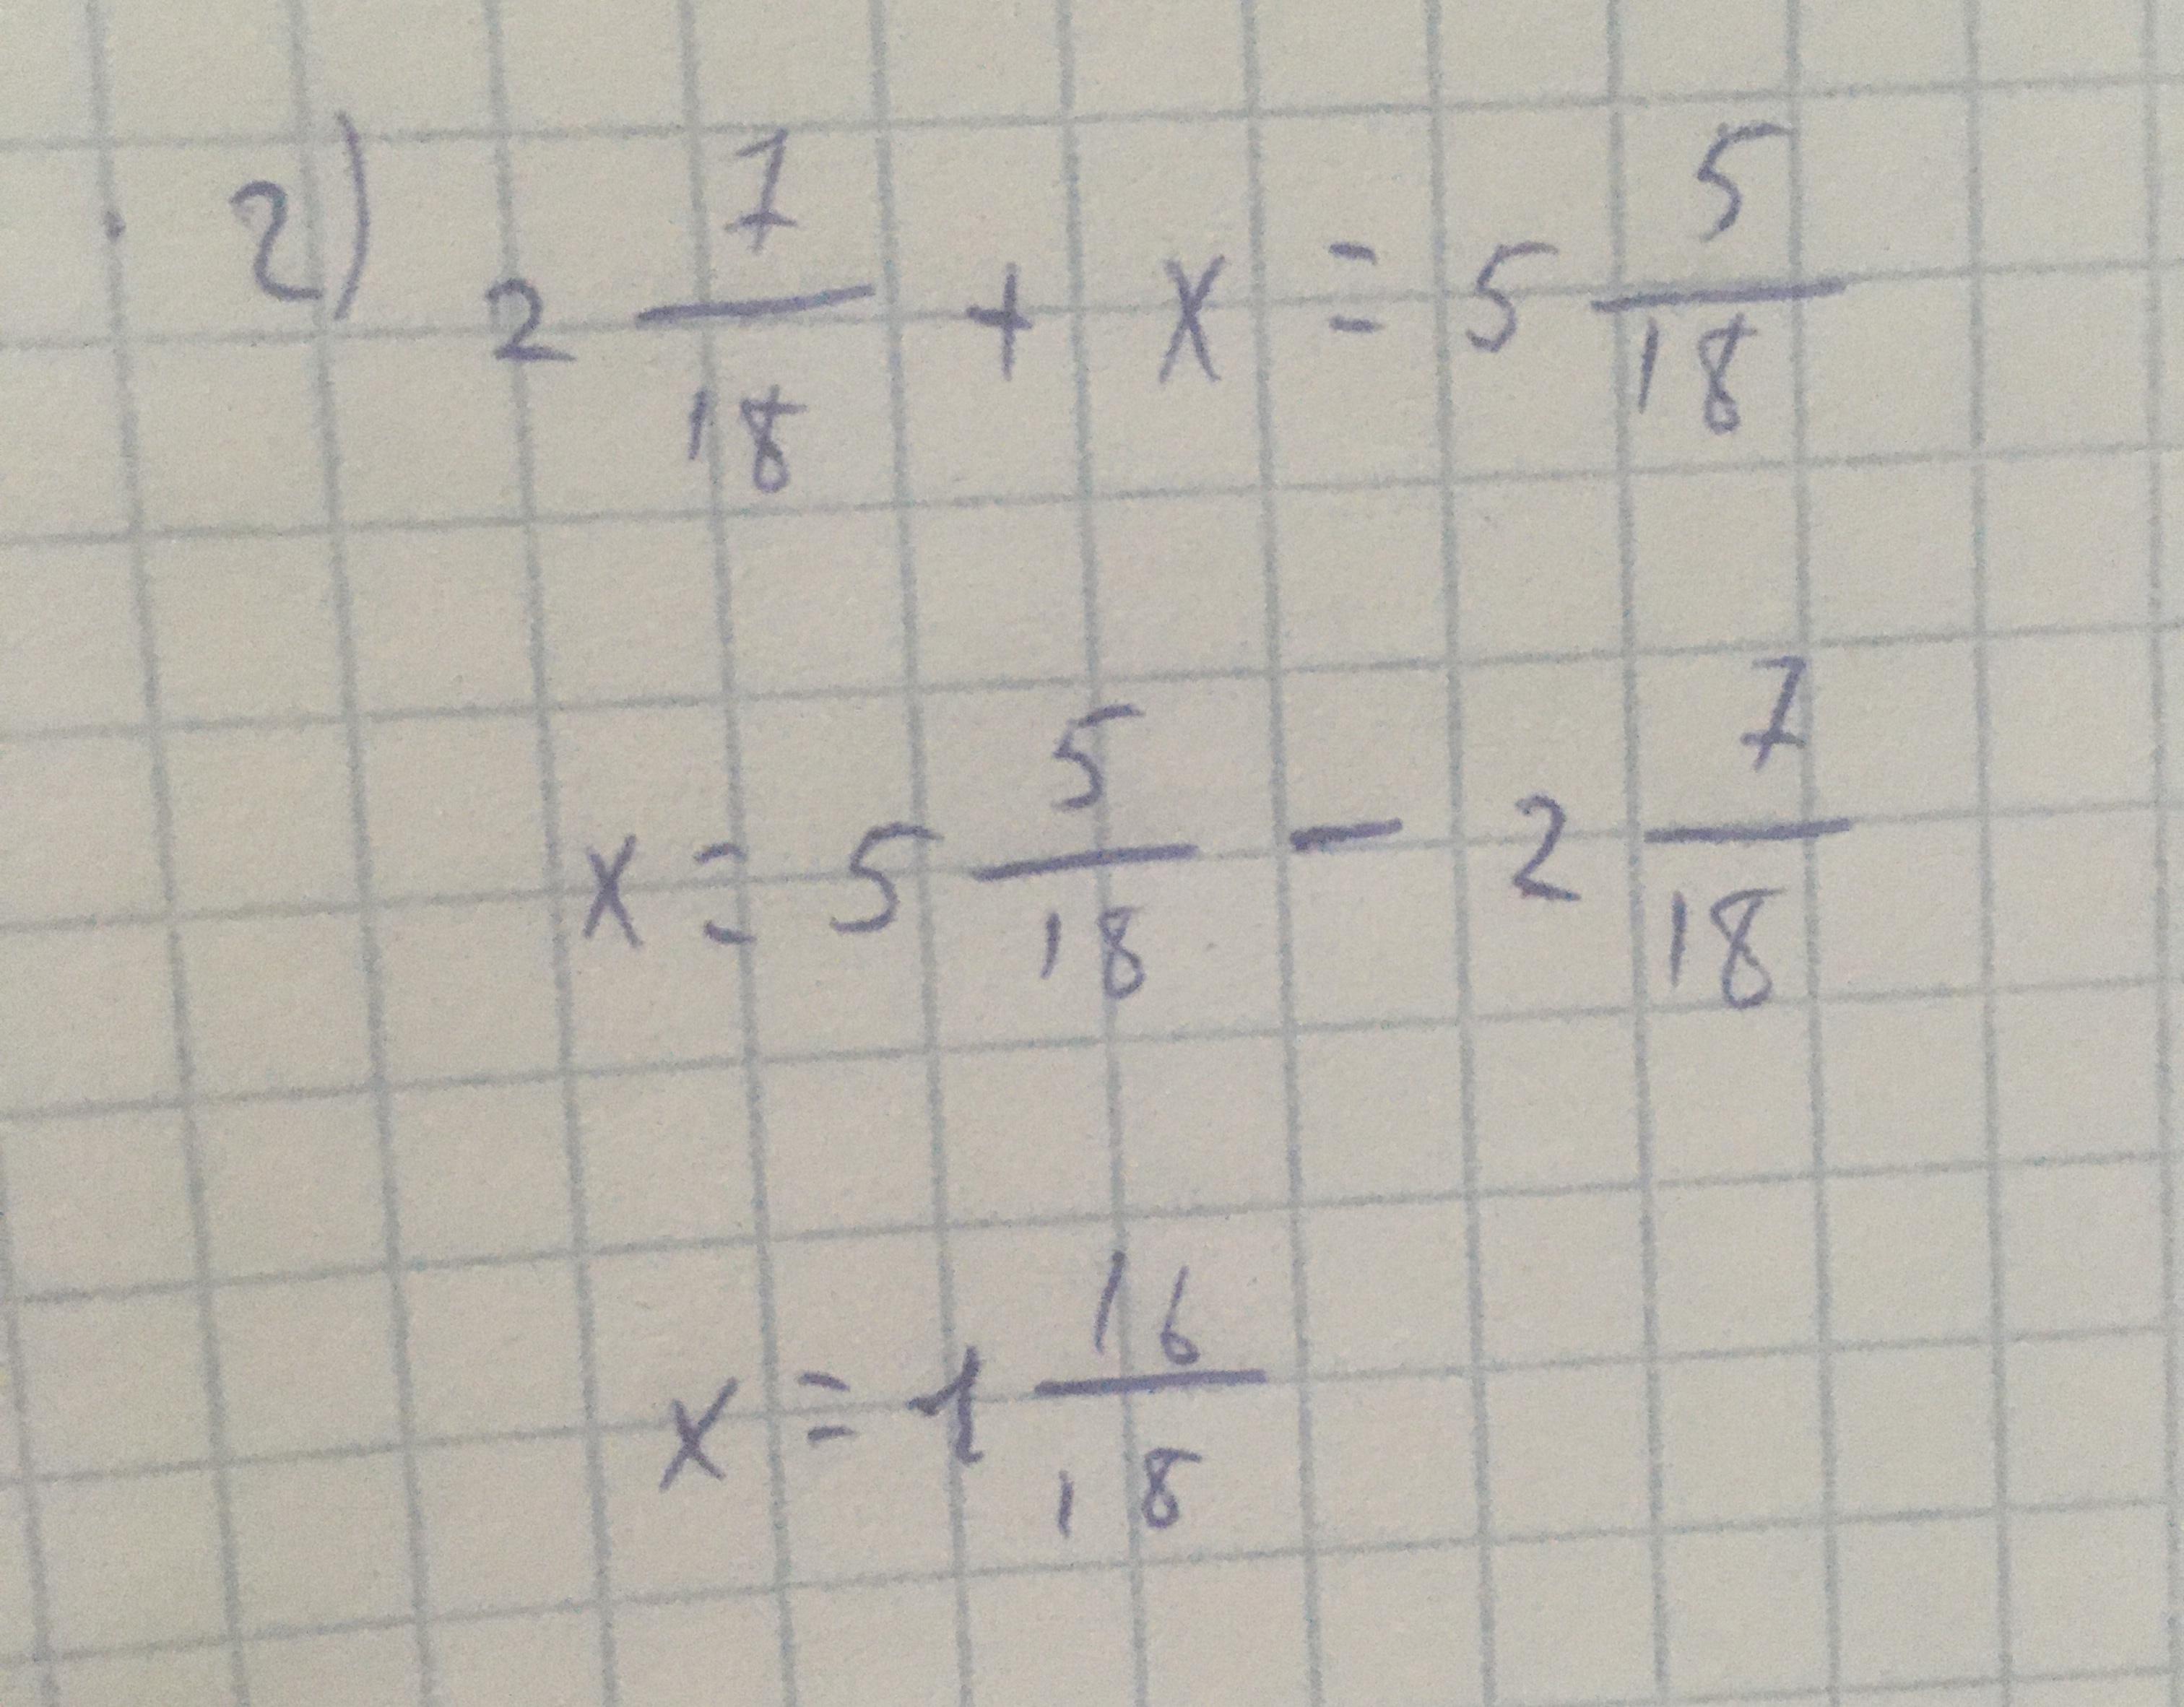 2) 2 7/18 + x = 5 5/18
x = 5 5/18 - 2 7/18
x = 1 16/18